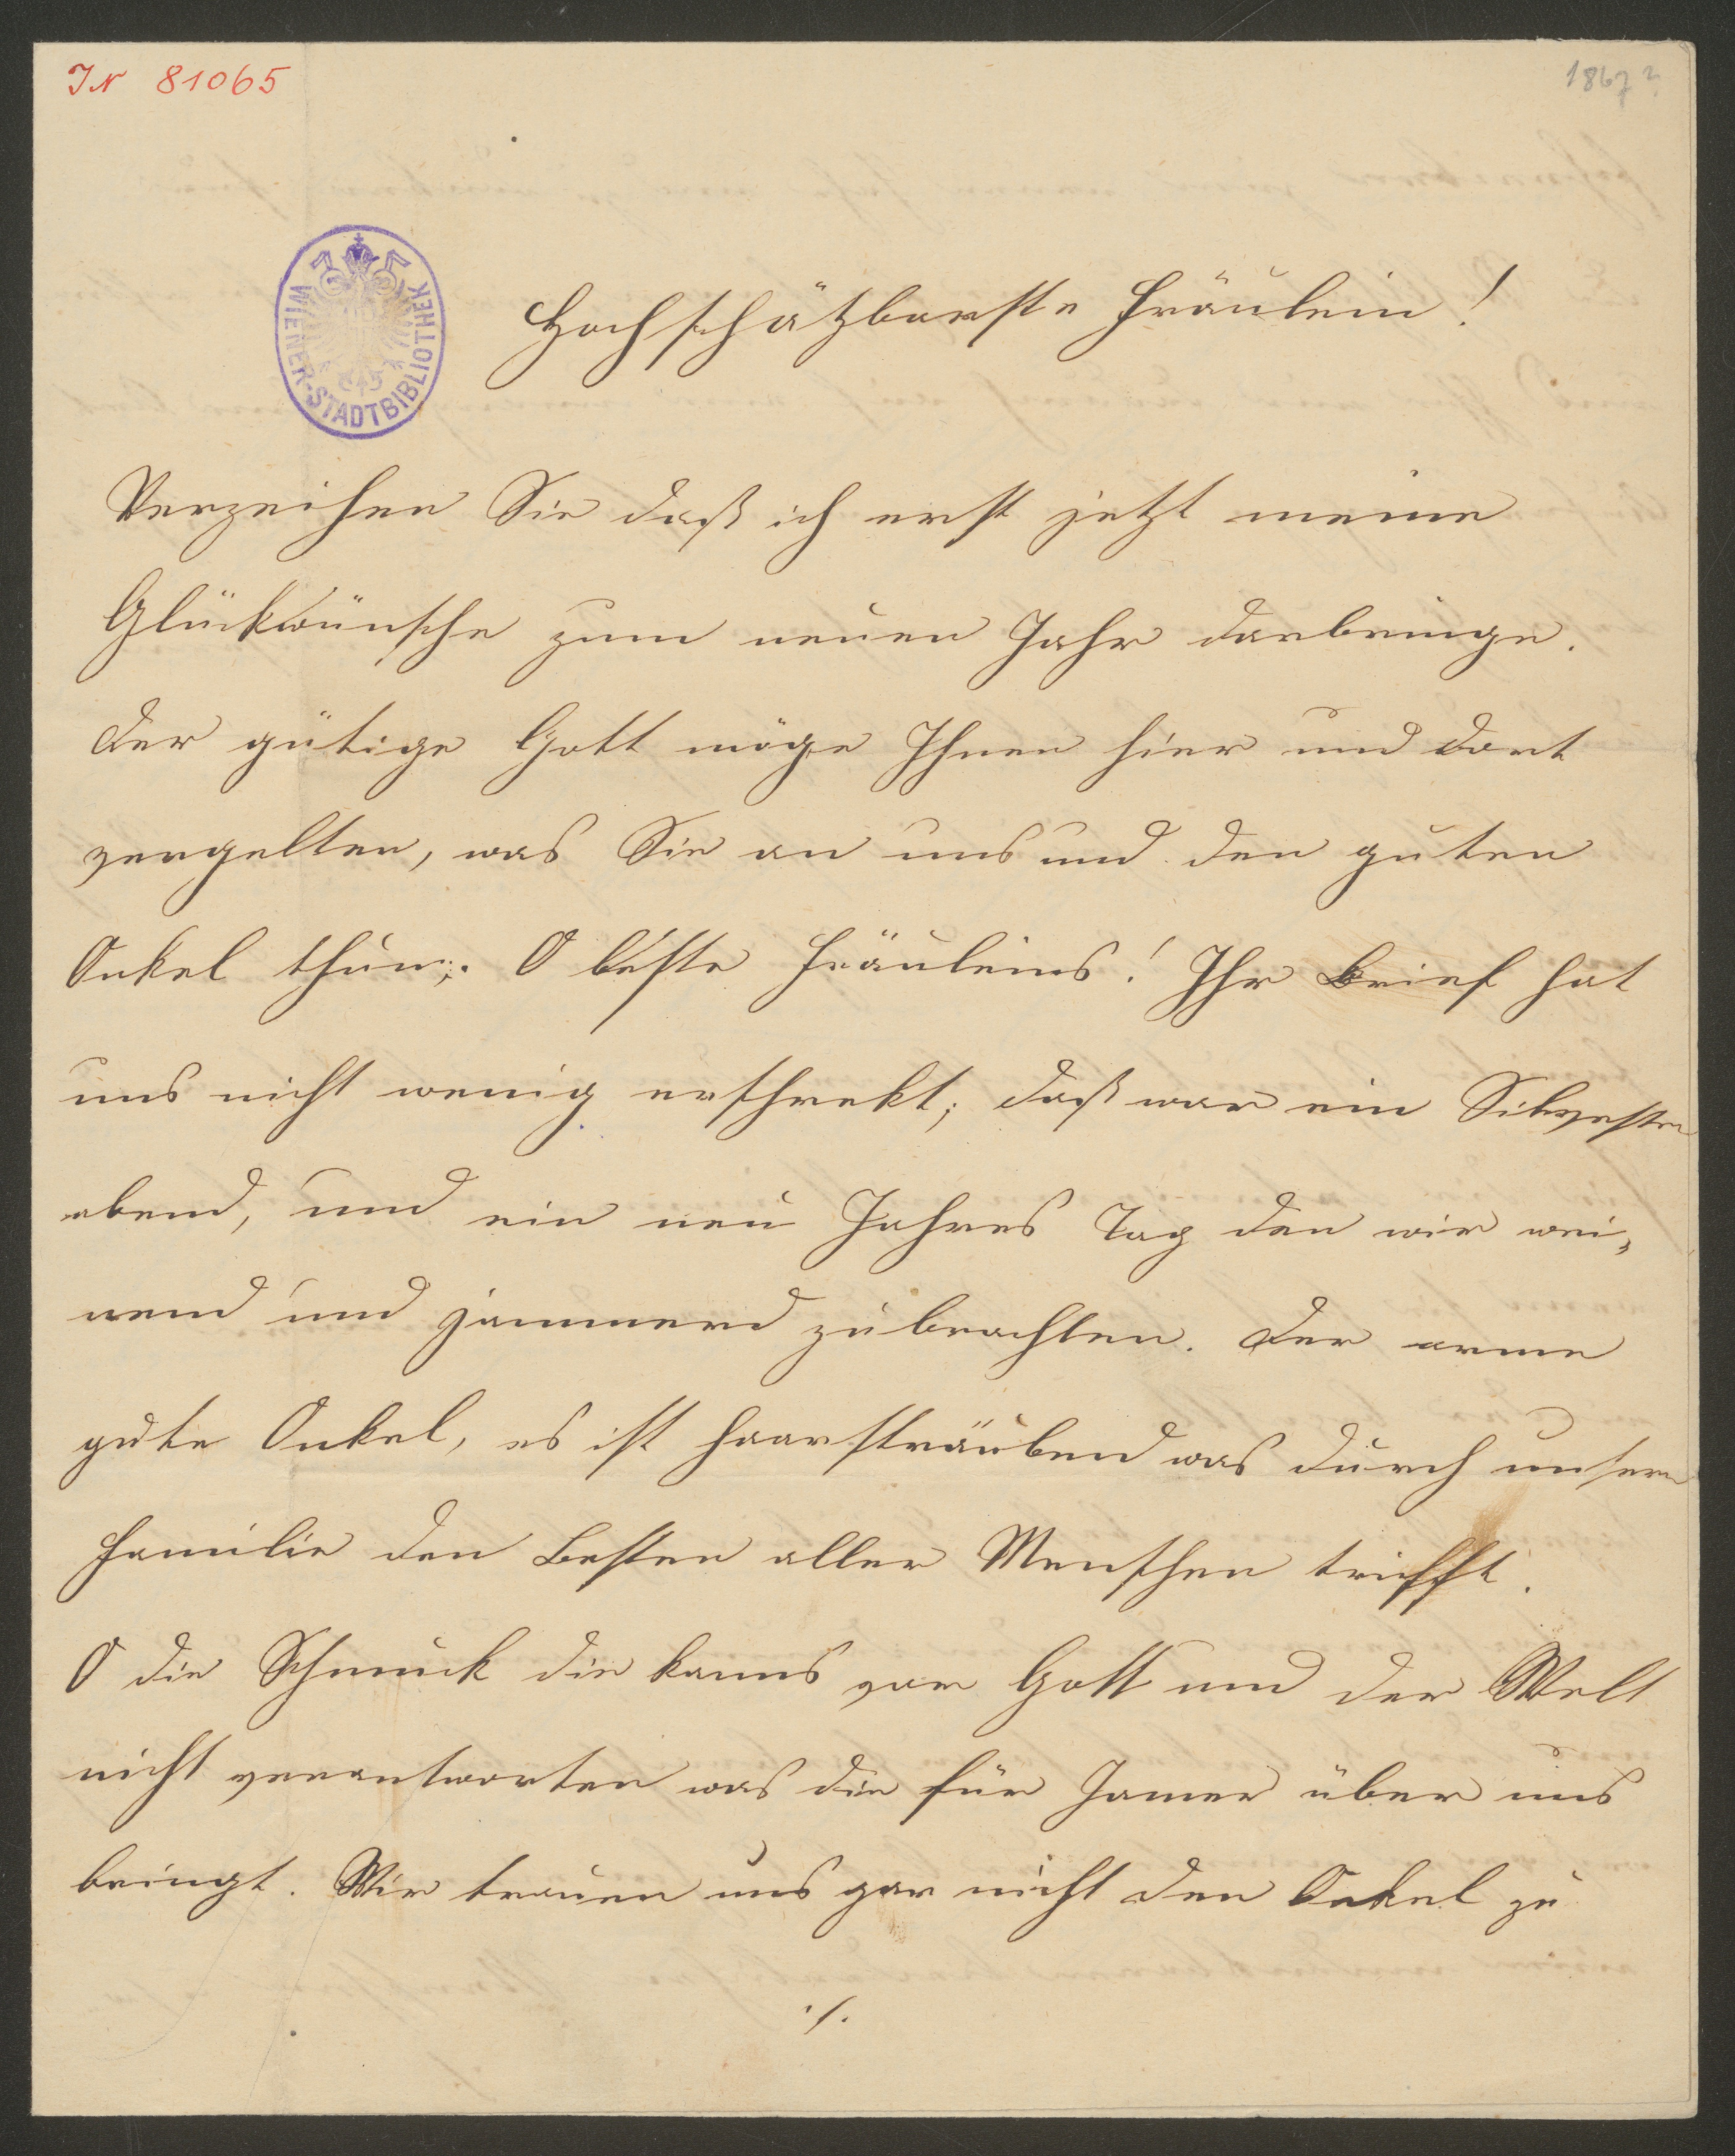 IN 81065
1867?
WIENER-STADTBIBLIOTHEK
Hochschätzbarste Fräulein!
Verzeihen Sie daß ich erst jetzt meine
Glückwünsche zum neuen Jahr darbringe.
Der gütige Gott möge Ihnen hier und dort
vergelten, was Sie an uns und den guten
Onkel thun;. O beste Fräuleins! Ihr Brief hat
uns nicht wenig erschrekt; daß war ein Silvester
abend, und ein neu Jahres Tag den wir wei„
nend und jammernd zubrachten. Der arme
gute Onkel, es ist haarsträubend was durch unsere
Familie den Besten aller Menschen trifft.
O die Schmuck die kanns vor Gott und der Welt
nicht verantworten was die für Jamer über uns
bringt. Wir trauen uns gar nicht den Onkel zu
./.